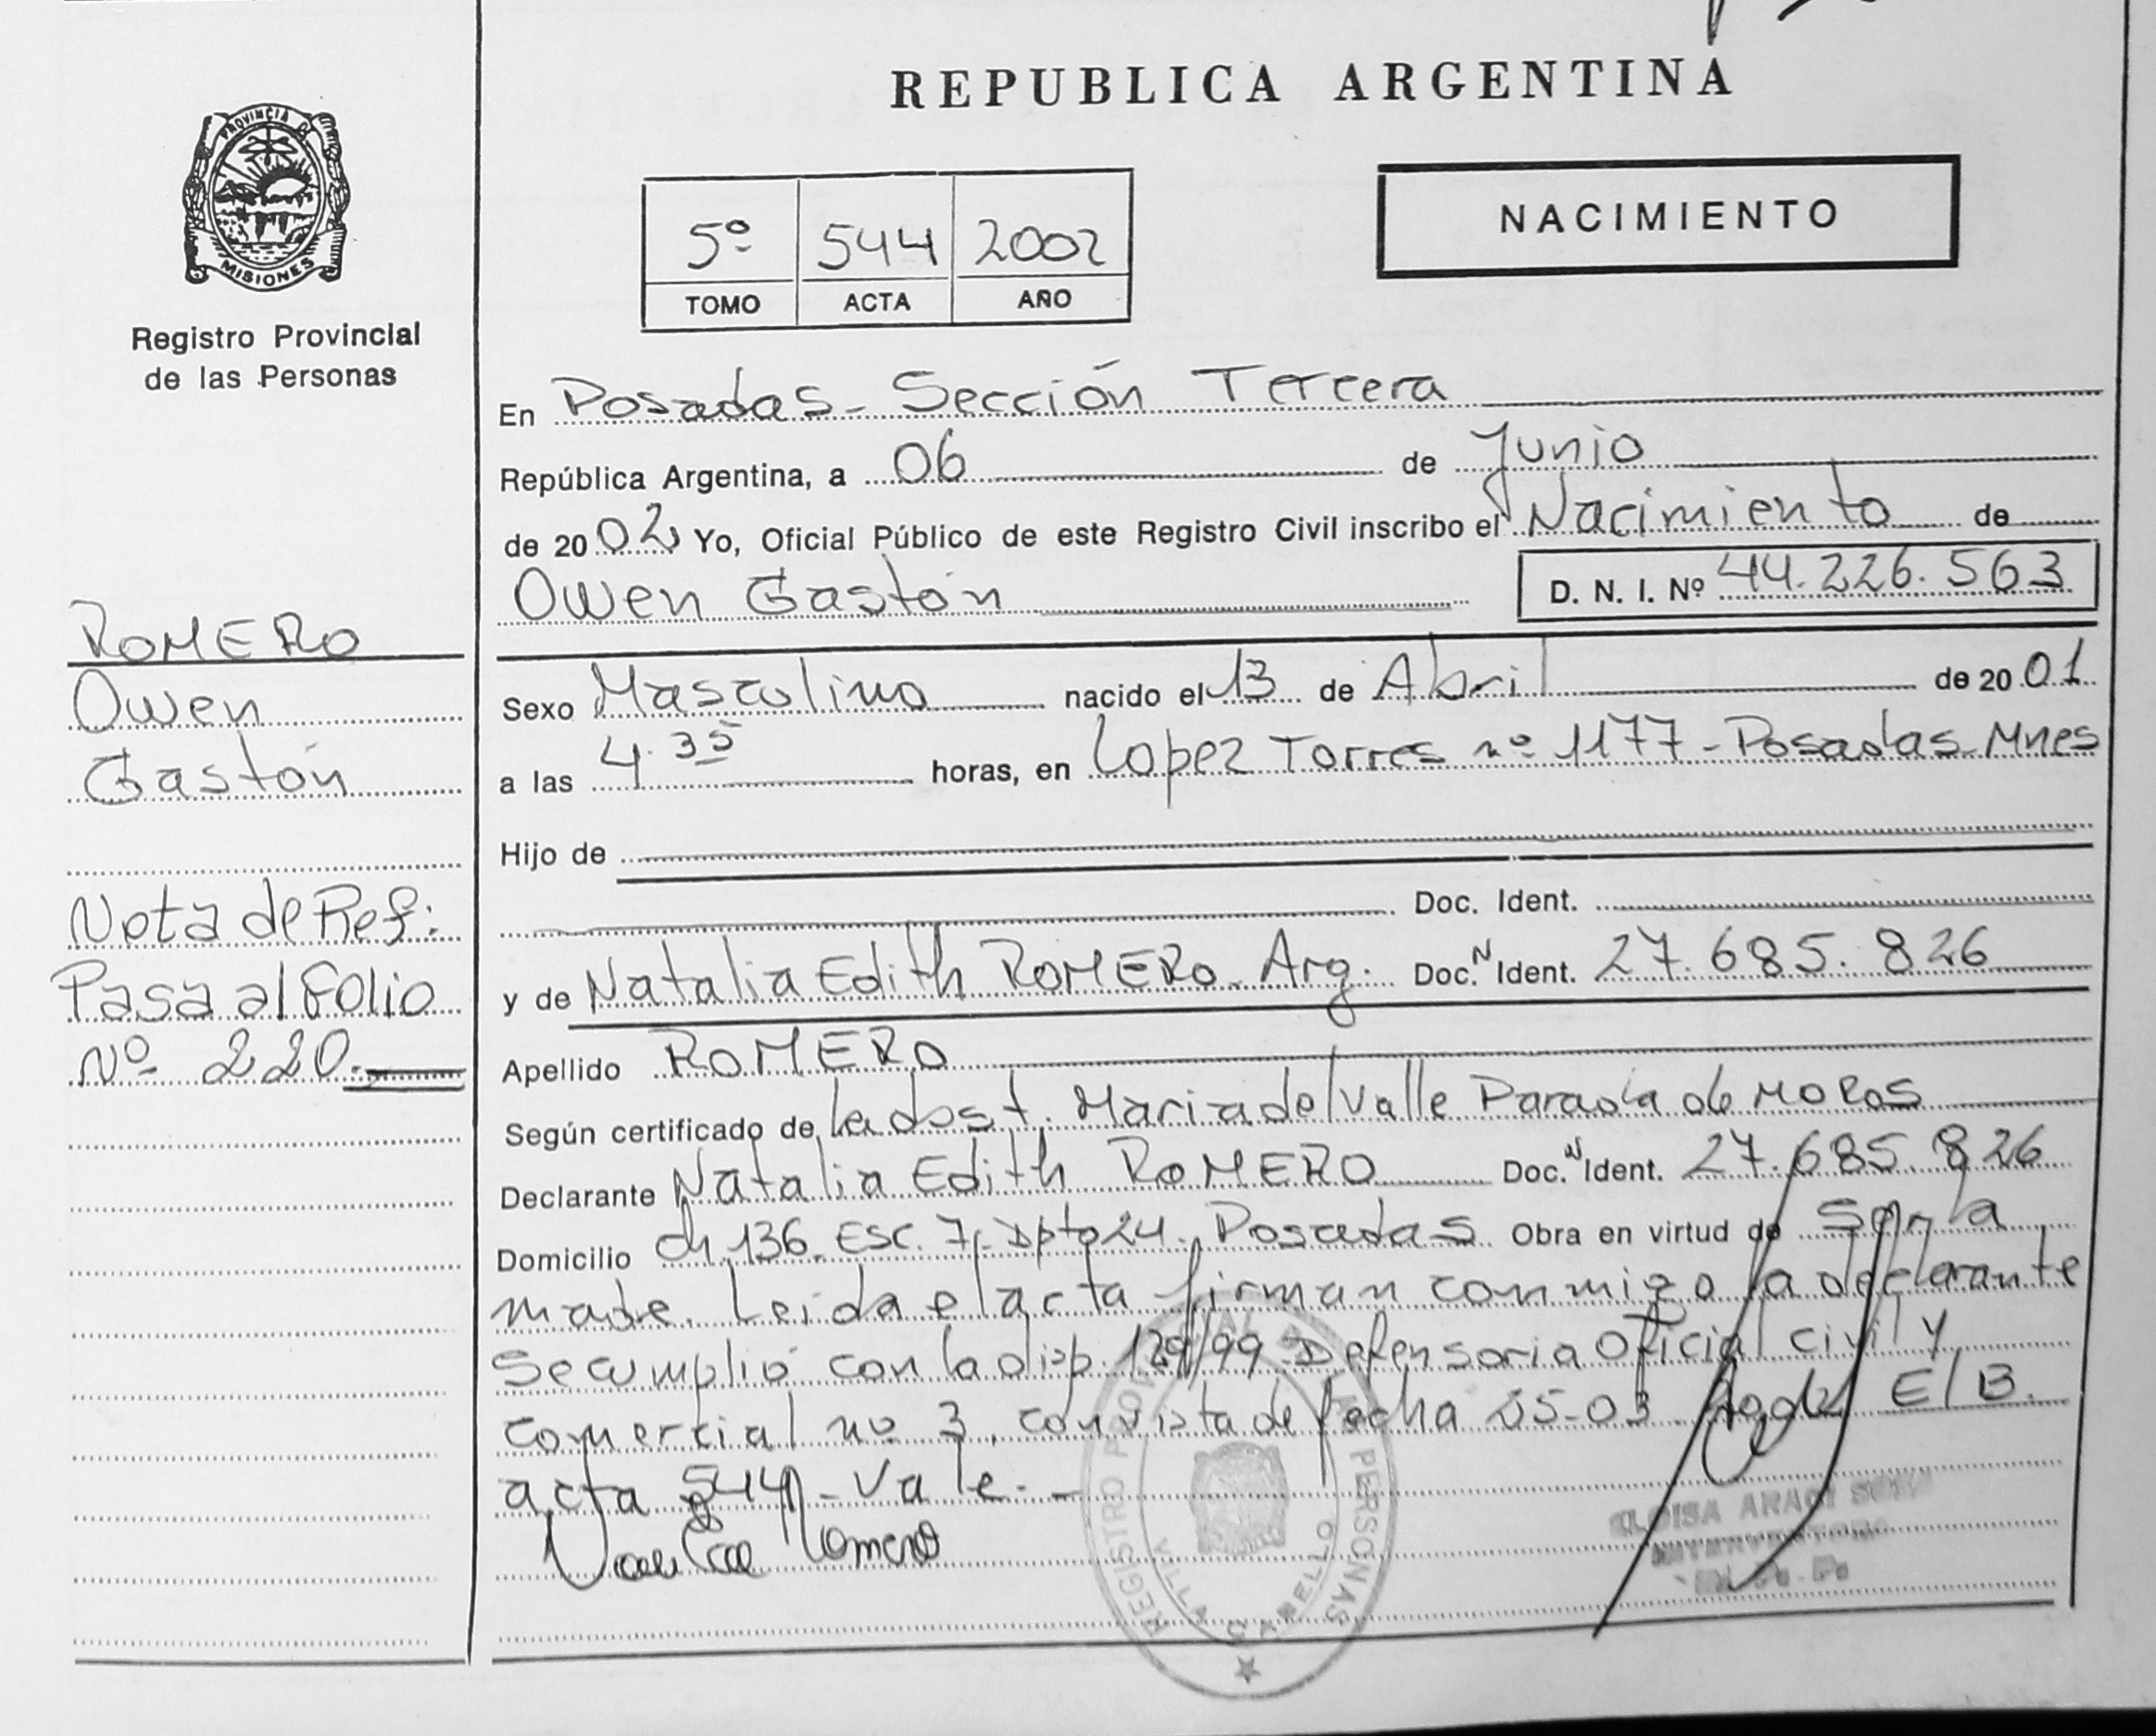 REPUBLICA ARGENTINA
PROVINCIA D
MISIONES
Registro Provincial
de las Personas
NACIMIENTO
5º 544 2002
TOMO ACTA AÑO
En Posadas - Sección Tercera
República Argentina, a 06 de Junio
de 2002 Yo, Oficial Público de este Registro Civil inscribo el Nacimiento de
Owen Gastón D. N. I. Nº 44.226.563
ROMERO
Owen
Gastón
Nota de Ref:
Pasa al folio
Nº 220.
Sexo Masculino nacido el 13 de Abril de 2001
a las 4.35 horas, en Lopez Torres nº 1177 - Posadas - Mnes
Hijo de
Doc. Ident.
y de Natalia Edith ROMERO - Arg. Doc. N Ident. 27.685.826
Apellido ROMERO
Según certificado de la obst. Maria del Valle Parada de MOROS
Declarante Natalia Edith ROMERO Doc. N Ident. 27.685.826
Domicilio Ch. 136. Esc. 7. Dpto 24. Posadas Obra en virtud de Ser la
madre. Leida el acta firman conmigo la declarante
Se cumplió con la disp. 129/99 Defensoria Oficial civil y
comercial nº 3, con vista de fecha 25-03 E/B.
acta 544 - Vale. -
Romero
REGISTRO PROVINCIAL PERSONAS
VILLA CABELLO
ELOISA ARACI
INTERVENTORA